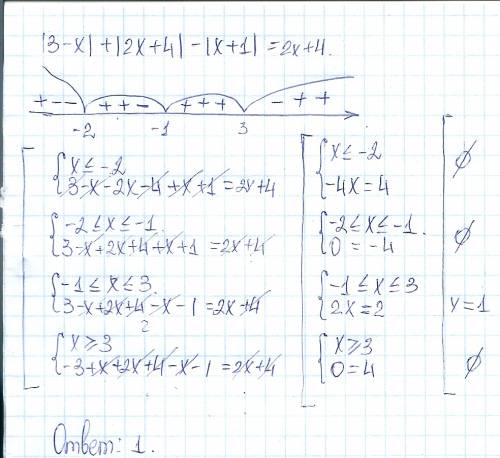 |3-x|+|2x+4|-|x+1|=2x+4.
+ - - + + - + + + - + +
-2 -1 3
x ≤ -2
3-x-2x-4+x+1=2x+4
-2 ≤ x ≤ -1.
3-x+2x+4+x+1=2x+4
-1 ≤ x ≤ 3.
3-x+2x+4-x-1=2x+4
2
x ≥ 3
-3+x+2x+4-x-1=2x+4
x ≤ -2
-4x=4
∅
-2 ≤ x ≤ -1.
0=-4
∅
-1 ≤ x ≤ 3
2x=2
x=1
x ≥ 3
0=4
∅
Ответ: 1.